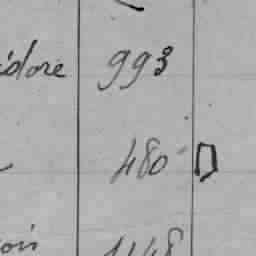 idore 993
480
ois 1148